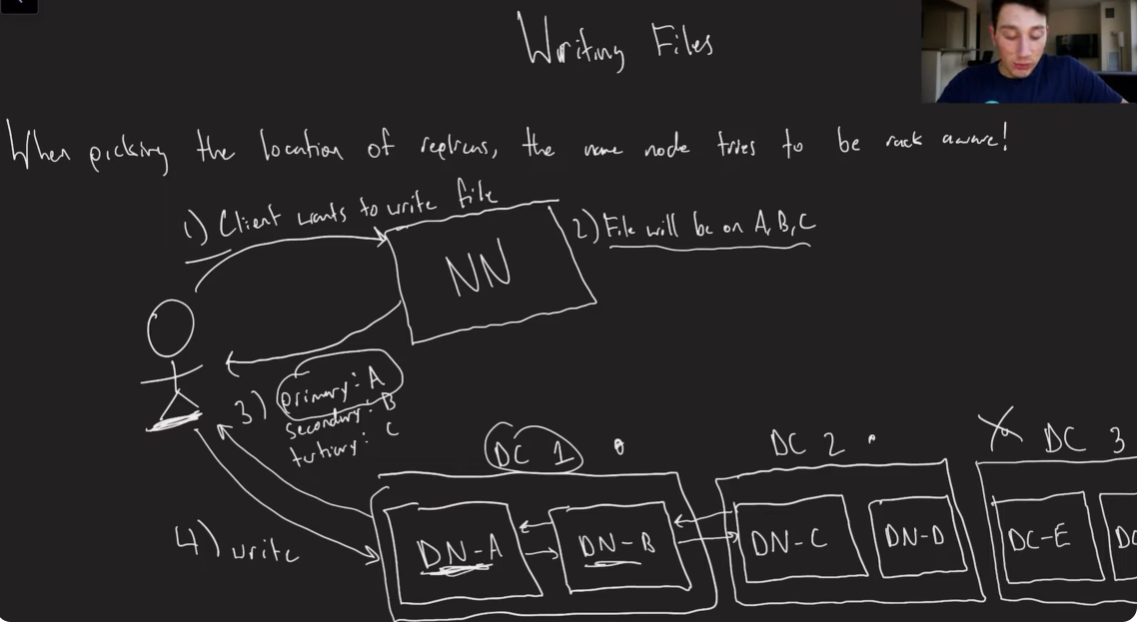 Writing Files
When picking the location of replicas, the name node tries to be rack aware!
1) Client wants to write file
2) File will be on A, B, C
NN
3) primary: A
secondary: B
tertiary: C
DC 1
DC 2
DC 3
4) write
DN-A
DN-B
DN-C
DN-D
DC-E
DC